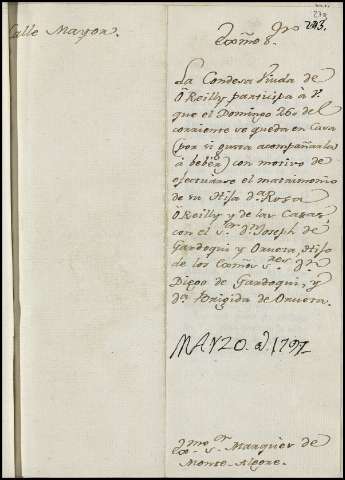 273
Calle Mayor.
Exmo Sor
La Condesa Viuda de
ÓReilly participa à V.
que el Domingo 26 del
corriente se queda en Casa
(por si gusta acompañarla
à beber) con motivo de
efectuarse el matrimonio
de su Hija da. Rosa
ÓReilly y de las Casas,
con el Sor. dn. Joseph de
Gardoqui y Orueta, Hijo
de los Exmos Sres dn.
Diego de Gardoqui, y
da. Brigida de Orueta.
MARZO d 1797
Exmo Sor Marques de
Monte-Alegre.